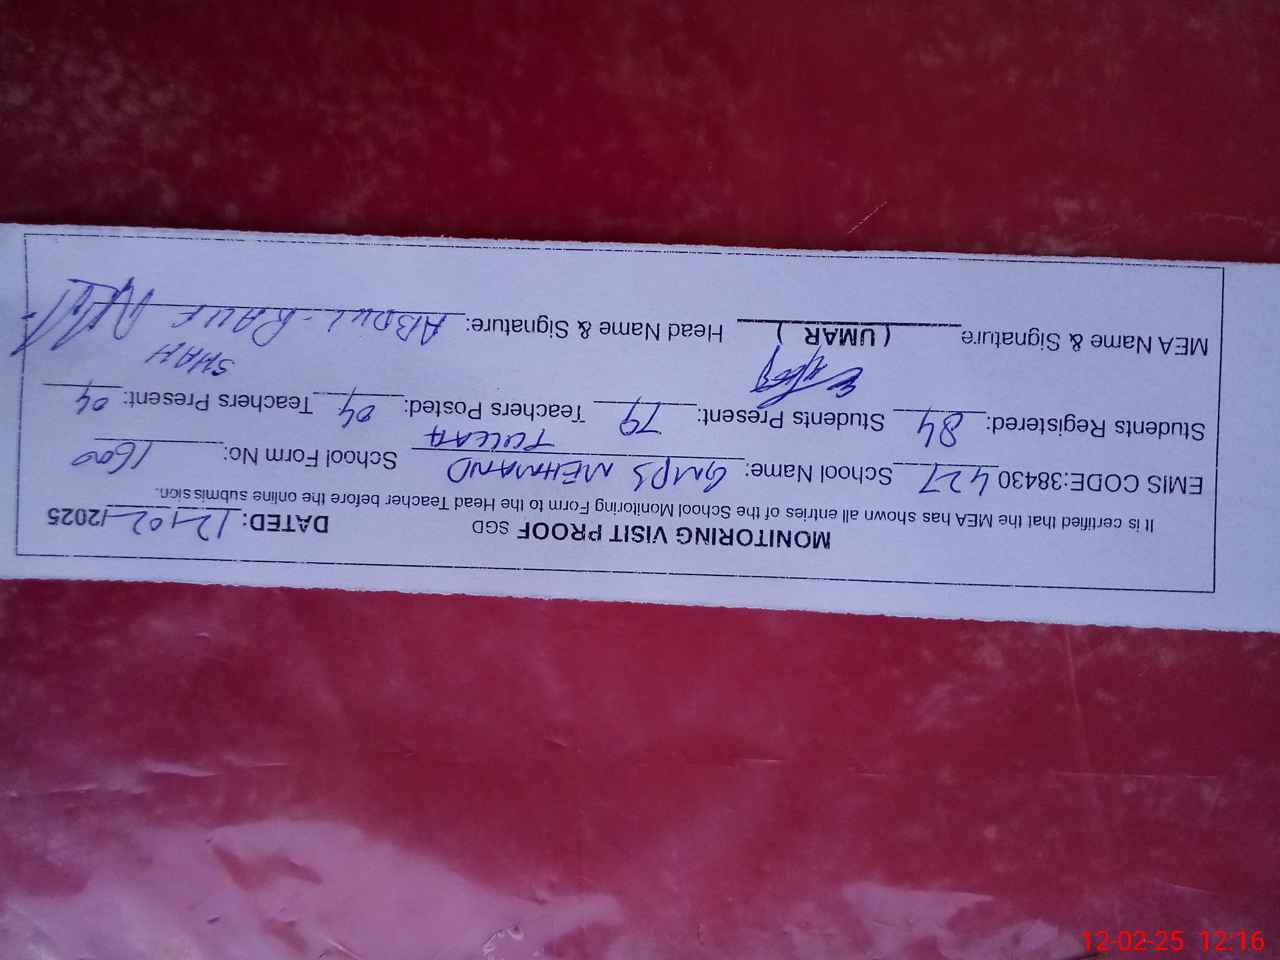 MONITORING VISIT PROOF SGD DATED: 12/02/2025
It is certified that the MEA has shown all entries of the School Monitoring Form to the Head Teacher before the online submission.
EMIS CODE:38430427 School Name: GMPS MEHMAND School Form No: 1600
TULLAH
Students Registered: 84 Students Present: 79 Teachers Posted: 04 Teachers Present: 04
SHAH
MEA Name & Signature (UMAR) Head Name & Signature: ABDUL RAUF
12-02-25 12:16